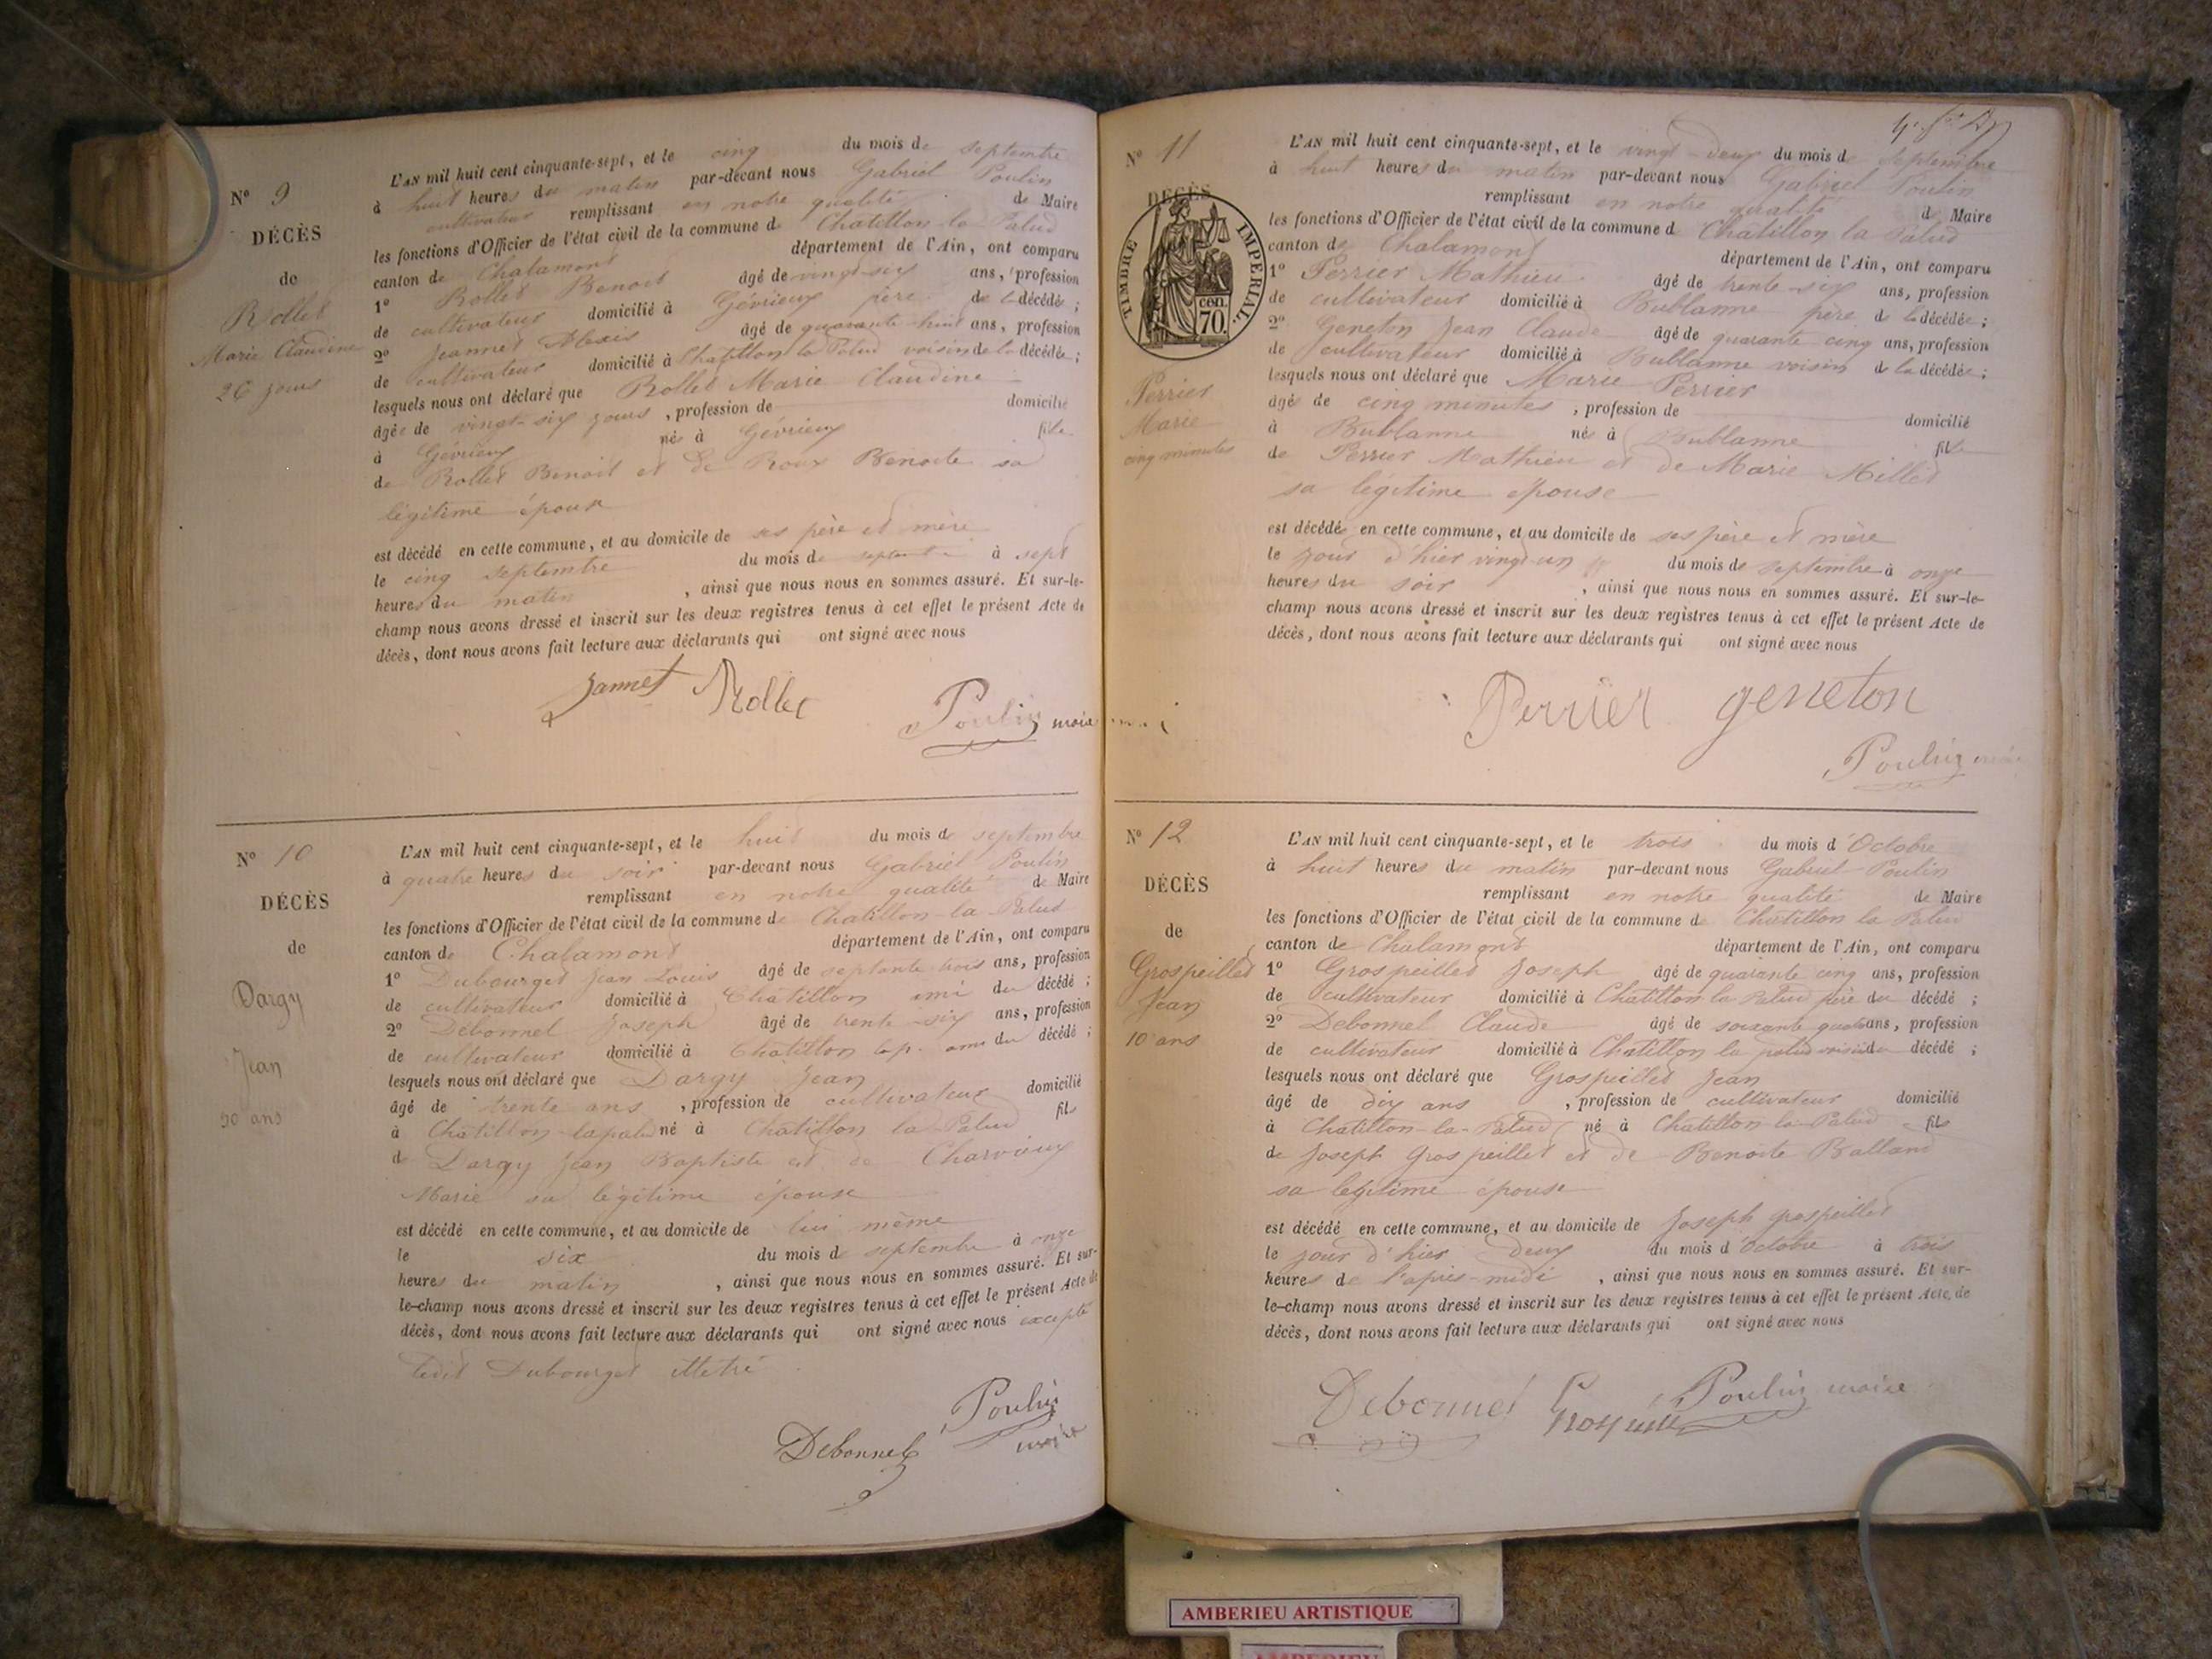 N° 9
DÉCÈS
de
Rollet
Marie Claudine
26 jours
L'AN mil huit cent cinquante-sept, et le cinq du mois de septembre
à huit heures du matin par-devant nous Gabriel Poulin
cultivateur remplissant en notre qualité de Maire
les fonctions d'Officier de l'état civil de la commune de Chatillon la Palud
canton de Chalamont département de l'Ain, ont comparu
1° Rollet Benoit âgé de vingt-six ans, profession
de cultivateur domicilié à Gévrieux père de la décédée ;
2° Jeannet Alexis âgé de quarante-huit ans, profession
de cultivateur domicilié à Chatillon la Palud voisin de la décédée ;
lesquels nous ont déclaré que Rollet Marie Claudine
âgée de vingt-six jours , profession de domicilié
à Gévrieux née à Gévrieux fille
de Rollet Benoit et de Roux Benoite sa
légitime épouse
est décédé en cette commune, et au domicile de ses père et mère
le cinq septembre du mois de septembre à sept
heures du matin , ainsi que nous nous en sommes assuré. Et sur-le-
champ nous avons dressé et inscrit sur les deux registres tenus à cet effet le présent Acte de
décès, dont nous avons fait lecture aux déclarants qui ont signé avec nous
Jannet Rollet
Poulin maire
N° 10
DÉCÈS
de
Dargy
Jean
30 ans
L'AN mil huit cent cinquante-sept, et le huit du mois de septembre
à quatre heures du soir par-devant nous Gabriel Poulin
remplissant en notre qualité de Maire
les fonctions d'Officier de l'état civil de la commune de Chatillon-la-Palud
canton de Chalamont département de l'Ain, ont comparu
1° Dubourget Jean Louis âgé de septante trois ans, profession
de cultivateur domicilié à Châtillon ami du décédé ;
2° Debonnel Joseph âgé de trente-six ans, profession
de cultivateur domicilié à Chatillon la p. ami du décédé ;
lesquels nous ont déclaré que Dargy Jean
âgé de trente ans , profession de cultivateur domicilié
à Châtillon-la palud né à Chatillon la Palud fils
de Dargy Jean Baptiste et de Charvieux
Marie sa légitime épouse
est décédé en cette commune, et au domicile de lui même
le six du mois de septembre à onze
heures du matin , ainsi que nous nous en sommes assuré. Et sur-
le-champ nous avons dressé et inscrit sur les deux registres tenus à cet effet le présent Acte de
décès, dont nous avons fait lecture aux déclarants qui ont signé avec nous excepté
ledit Dubourget illetré
Poulin
Debonnel maire
N° 11
DÉCÈS
TIMBRE IMPERIAL.
cen.
70.
Perrier
Marie
cinq minutes
L'AN mil huit cent cinquante-sept, et le vingt-deux du mois de septembre
à huit heures du matin par-devant nous Gabriel Poulin
remplissant en notre qualité de Maire
les fonctions d'Officier de l'état civil de la commune de Chatillon la Palud
canton de Chalamont département de l'Ain, ont comparu
1° Perrier Mathieu âgé de trente-six ans, profession
de cultivateur domicilié à Bublanne père de la décédée ;
2° Geneton Jean Claude âgé de quarante cinq ans, profession
de cultivateur domicilié à Bublanne voisin de la décédée ;
lesquels nous ont déclaré que Marie Perrier
âgée de cinq minutes , profession de domicilié
à Bublanne née à Bublanne fille
de Perrier Mathieu et de Marie Millet
sa légitime épouse
est décédée en cette commune, et au domicile de ses père et mère
le jour d'hier vingt-un du mois de septembre à onze
heures du soir , ainsi que nous nous en sommes assuré. Et sur-le-
champ nous avons dressé et inscrit sur les deux registres tenus à cet effet le présent Acte de
décès, dont nous avons fait lecture aux déclarants qui ont signé avec nous
Perrier geneton
Poulin maire
N° 12
DÉCÈS
de
Grospeillet
Jean
10 ans
L'AN mil huit cent cinquante-sept, et le trois du mois d'Octobre
à huit heures du matin par-devant nous Gabriel Poulin
remplissant en notre qualité de Maire
les fonctions d'Officier de l'état civil de la commune de Chatillon la Palud
canton de Chalamont département de l'Ain, ont comparu
1° Grospeillet Joseph âgé de quarante cinq ans, profession
de cultivateur domicilié à Châtillon la Palud père du décédé ;
2° Debonnel Claude âgé de soixante quatre ans, profession
de cultivateur domicilié à Chatillon la palud voisin du décédé ;
lesquels nous ont déclaré que Grospeillet Jean
âgé de dix ans , profession de cultivateur domicilié
à Chatillon-la-Palud né à Chatillon-la-Palud fils
de Joseph Grospeillet et de Benoite Balland
sa légitime épouse
est décédé en cette commune, et au domicile de Joseph grospeillet
le jour d'hier deux du mois d'Octobre à trois
heures de l'après-midi , ainsi que nous nous en sommes assuré. Et sur-
le-champ nous avons dressé et inscrit sur les deux registres tenus à cet effet le présent Acte de
décès, dont nous avons fait lecture aux déclarants qui ont signé avec nous
Debonnel Poulin maire
AMBERIEU ARTISTIQUE
AMBERIEU